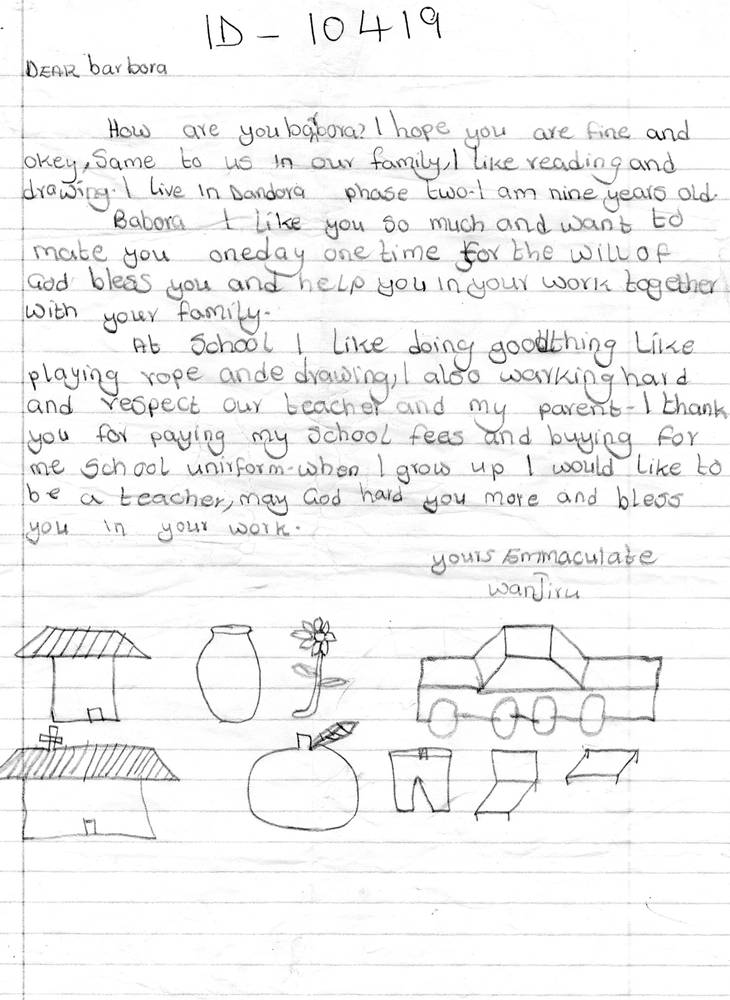 ID - 10419
DEAR barbora
How are you barbora? I hope you are fine and
okey, Same to us in our family, I like reading and
drawing. I live in Dandora phase two. I am nine years old.
Babora I like you so much and want to
mate you oneday one time for the will of
God bless you and help you in your work together
with your family.
At School I like doing goodthing like
playing rope ande drawing, I also warking hard
and respect our teacher and my parent - I thank
you for paying my school fees and buying for
me school unirform - when I grow up I would like to
be a teacher, may God hard you more and bless
you in your work.
yours Emmaculate
Wanjiru